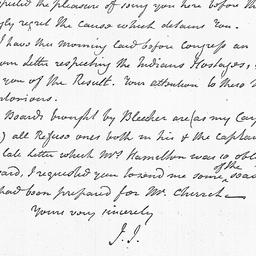 the pleasure of seeing you here before th
regret the cause which detains You.
I have this morning laid before Congress an
letter respecting the Indians Hostages,
you of the Result. Your attention to these
Boards brought by Bleecker are (as my Car
) all Refuse ones both in his & the captain
late Letter which Mrs Hamilton was so obli
I requested you to send me some of the boar
had been prepared for Mr. Church—
Yours very sincerely
J. J.